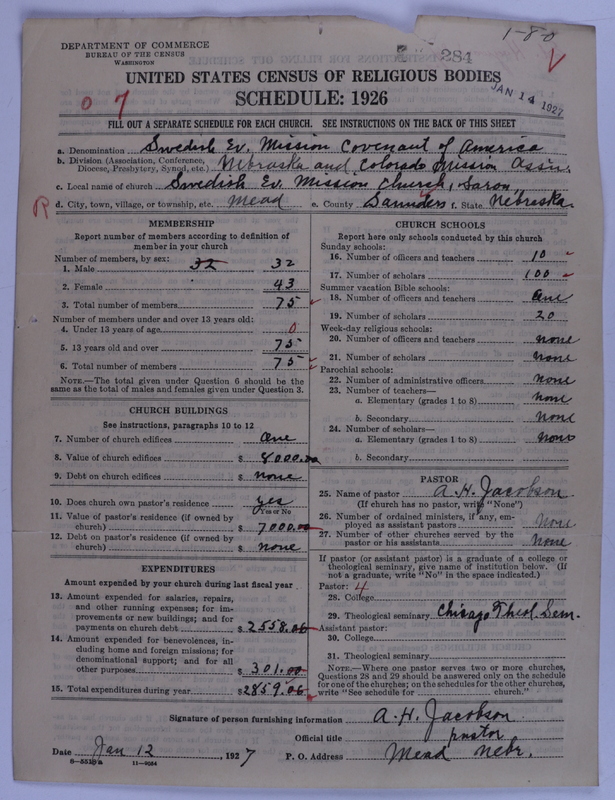 1-8-0
284
DEPARTMENT OF COMMERCE
BUREAU OF THE CENSUS
WASHINGTON
UNITED STATES CENSUS OF RELIGIOUS BODIES
SCHEDULE: 1926
JAN 14 1927
0 7
FILL OUT A SEPARATE SCHEDULE FOR EACH CHURCH. SEE INSTRUCTIONS ON THE BACK OF THIS SHEET
a. Denomination Swedish Ev. Mission Covenant of America
b. Division (Association, Conference, Diocese, Presbytery, Synod, etc.) Nebraska and Colorado Mission Assn.
c. Local name of church Swedish Ev. Mission Church, Saron,
R d. City, town, village, or township, etc. Mead e. County Saunders f. State Nebraska
MEMBERSHIP
Report number of members according to definition of
member in your church
Number of members, by sex:
1. Male 32 32
2. Female 43
3. Total number of members 75
Number of members under and over 13 years old:
4. Under 13 years of age 0
5. 13 years old and over 75
6. Total number of members 75
NOTE.—The total given under Question 6 should be
same as the total of males and females given under Question 3.
CHURCH BUILDINGS
See instructions, paragraphs 10 to 12
7. Number of church edifices One
8. Value of church edifices $ 8000.00
9. Debt on church edifices $ none
10. Does church own pastor's residence yes
Yes or No
11. Value of pastor's residence (if owned by
church) $ 7000.00
12. Debt on pastor's residence (if owned by
church) $ none
EXPENDITURES
Amount expended by your church during last fiscal year
13. Amount expended for salaries, repairs,
and other running expenses; for im-
provements or new buildings; and for
payments on church debt $ 2558.06
14. Amount expended for benevolences, in-
cluding home and foreign missions; for
denominational support; and for all
other purposes $ 301.00
15. Total expenditures during year $ 2859.06
CHURCH SCHOOLS
Report here only schools conducted by this church
Sunday schools:
16. Number of officers and teachers 10
17. Number of scholars 100
Summer vacation Bible schools:
18. Number of officers and teachers One
19. Number of scholars 20
Week-day religious schools:
20. Number of officers and teachers none
21. Number of scholars none
Parochial schools:
22. Number of administrative officers none
23. Number of teachers—
a. Elementary (grades 1 to 8) none
b. Secondary none
24. Number of scholars—
a. Elementary (grades 1 to 8) none
b. Secondary
PASTOR
25. Name of pastor A. H. Jacobson
(If church has no pastor, write "None")
26. Number of ordained ministers, if any, em-
ployed as assistant pastors none
27. Number of other churches served by the
pastor or his assistants none
If pastor (or assistant pastor) is a graduate of a college or
theological seminary, give name of institution below. (If
not a graduate, write "No" in the space indicated.)
Pastor: 4
28. College
29. Theological seminary Chicago Theol. Sem.
Assistant pastor:
30. College
31. Theological seminary
NOTE.—Where one pastor serves two or more churches,
Questions 28 and 29 should be answered only on the schedule
for one of the churches; on the schedules for the other churches,
write "See schedule for church."
Signature of person furnishing information A. H. Jacobson
Official title pastor
Date Jan 12, 1927 P. O. Address Mead Nebr.
8-5518a 11-9034